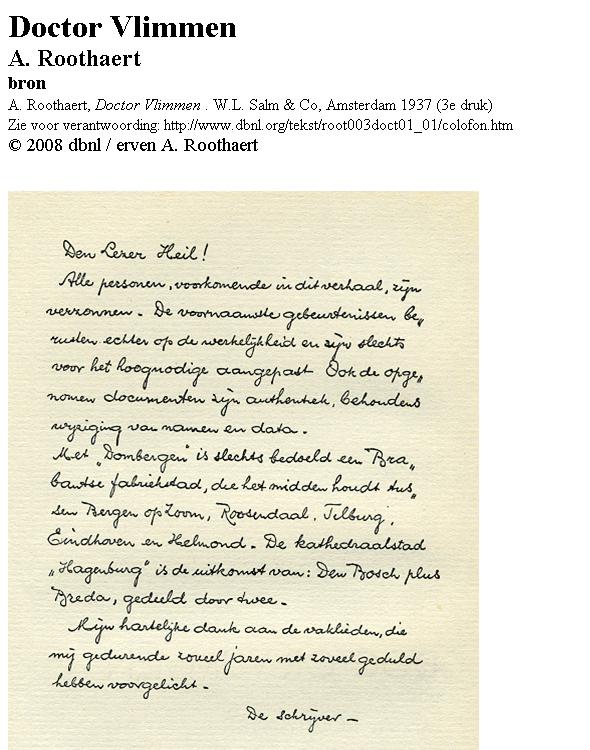 Doctor Vlimmen
A. Roothaert
bron
A. Roothaert, Doctor Vlimmen . W.L. Salm & Co, Amsterdam 1937 (3e druk)
Zie voor verantwoording: http://www.dbnl.org/tekst/root003doct01_01/colofon.htm
© 2008 dbnl / erven A. Roothaert
Den Lezer Heil!
Alle personen, voorkomende in dit verhaal, zijn
verzonnen. De voornaamste gebeurtenissen be„
rusten echter op de werkelijkheid en zijn slechts
voor het hoognodige aangepast. Ook de opge„
nomen documenten zijn authentiek, behoudens
wijziging van namen en data.
Met „Dombergen" is slechts bedoeld een Bra„
bantse fabriekstad, die het midden houdt tus„
sen Bergen op Zoom, Roosendaal, Tilburg,
Eindhoven en Helmond. De kathedraalstad
„Hagenburg" is de uitkomst van: Den Bosch plus
Breda, gedeeld door twee.
Mijn hartelijke dank aan de vaklieden, die
mij gedurende zoveel jaren met zoveel geduld
hebben voorgelicht.
De schrijver —